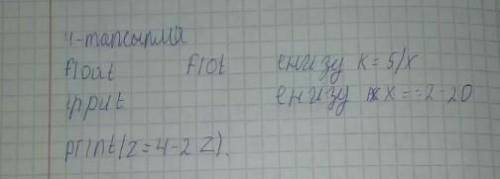 4-тапсырма
float flot енгізу k=5/x
ipput енгізу x=-2-20
print(z=4-2 z).